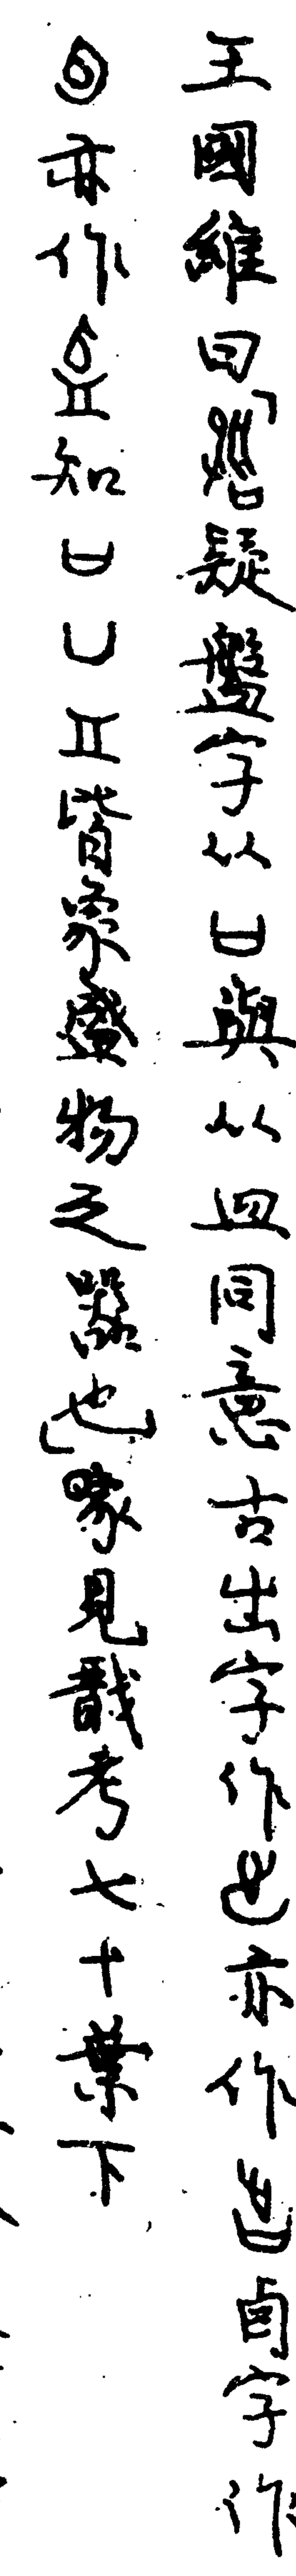 王國維曰「疑盤字从𠙵與从皿同意古出字作亦作卣字作
亦作知𠙵凵皿皆象盛物之器也」 見戩考七十葉下